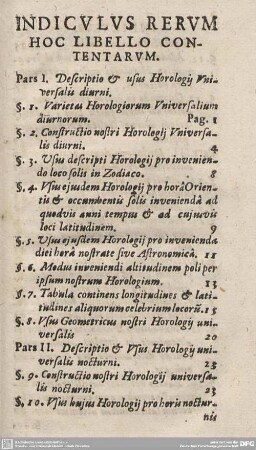 INDICVLVS RERVM
HOC LIBELLO CON-
TENTARVM.
Pars I. Descriptio & usus Horologij Vni-
versalis diurni.
§. 1. Varietas Horologiorum Vniversalium
diurnorum. Pag. 1
§. 2. Constructio nostri Horologij Vniversa-
lis diurni. 4
§. 3. Vsus descripti Horologij pro invenien-
do loco solis in Zodiaco. 8
§. 4. Vsus ejusdem Horologij pro horâ Orien-
tis & occumbentis solis inveniendâ ad
quodvis anni tempus & ad cujusvis
loci latitudinem. 9
§. 5. Usus ejusdem Horologij pro invenienda
diei horâ nostrate sive Astronomicâ. 11
§. 6. Modus inveniendi altitudinem poli per
ipsum nostrum Horologium. 13
§. 7. Tabula continens longitudines & lati-
tudines aliquorum celebrium locorũ. 15
§. 8. Vsus Geometricus nostri Horologij uni-
versalis 20
Pars II. Descriptio & Vsus Horologij uni-
versalis nocturni. 23
§. 9. Constructio nostri Horologij universa-
lis nocturni. 23
§. 10. Vsus hujus Horologij pro horis noctur-
nis